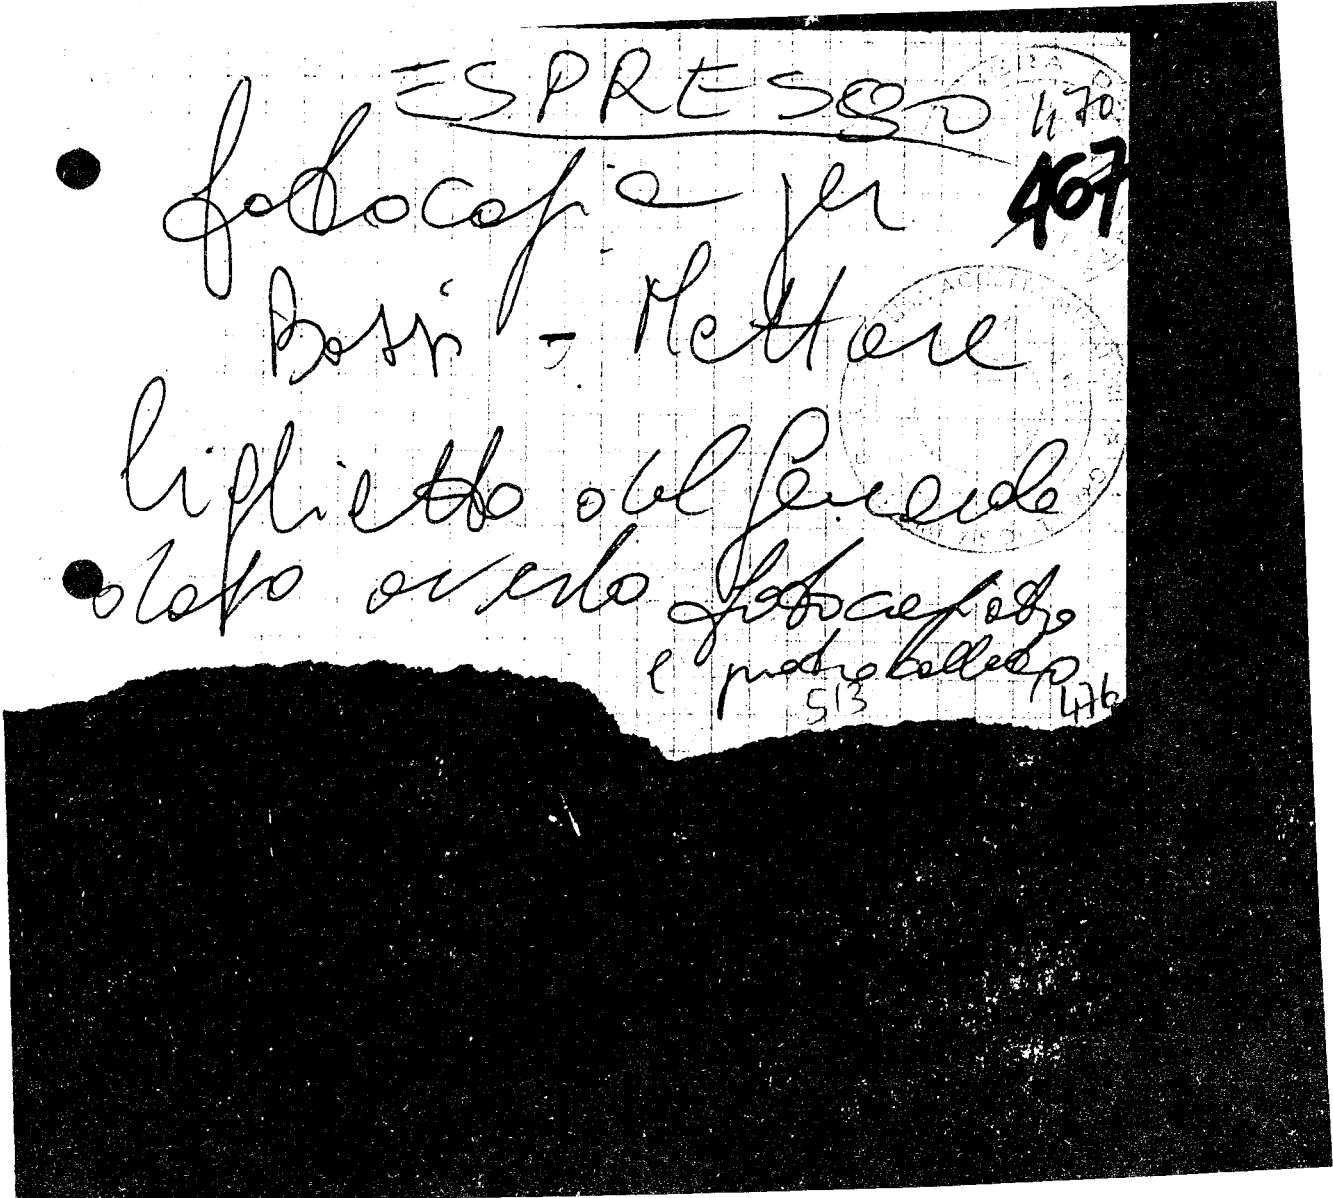 ESPRESSO
470
fotocopia per
467
Bossi - Mettere
biglietto del Generale
dopo averlo fotocopiato
e protocollato
513 476